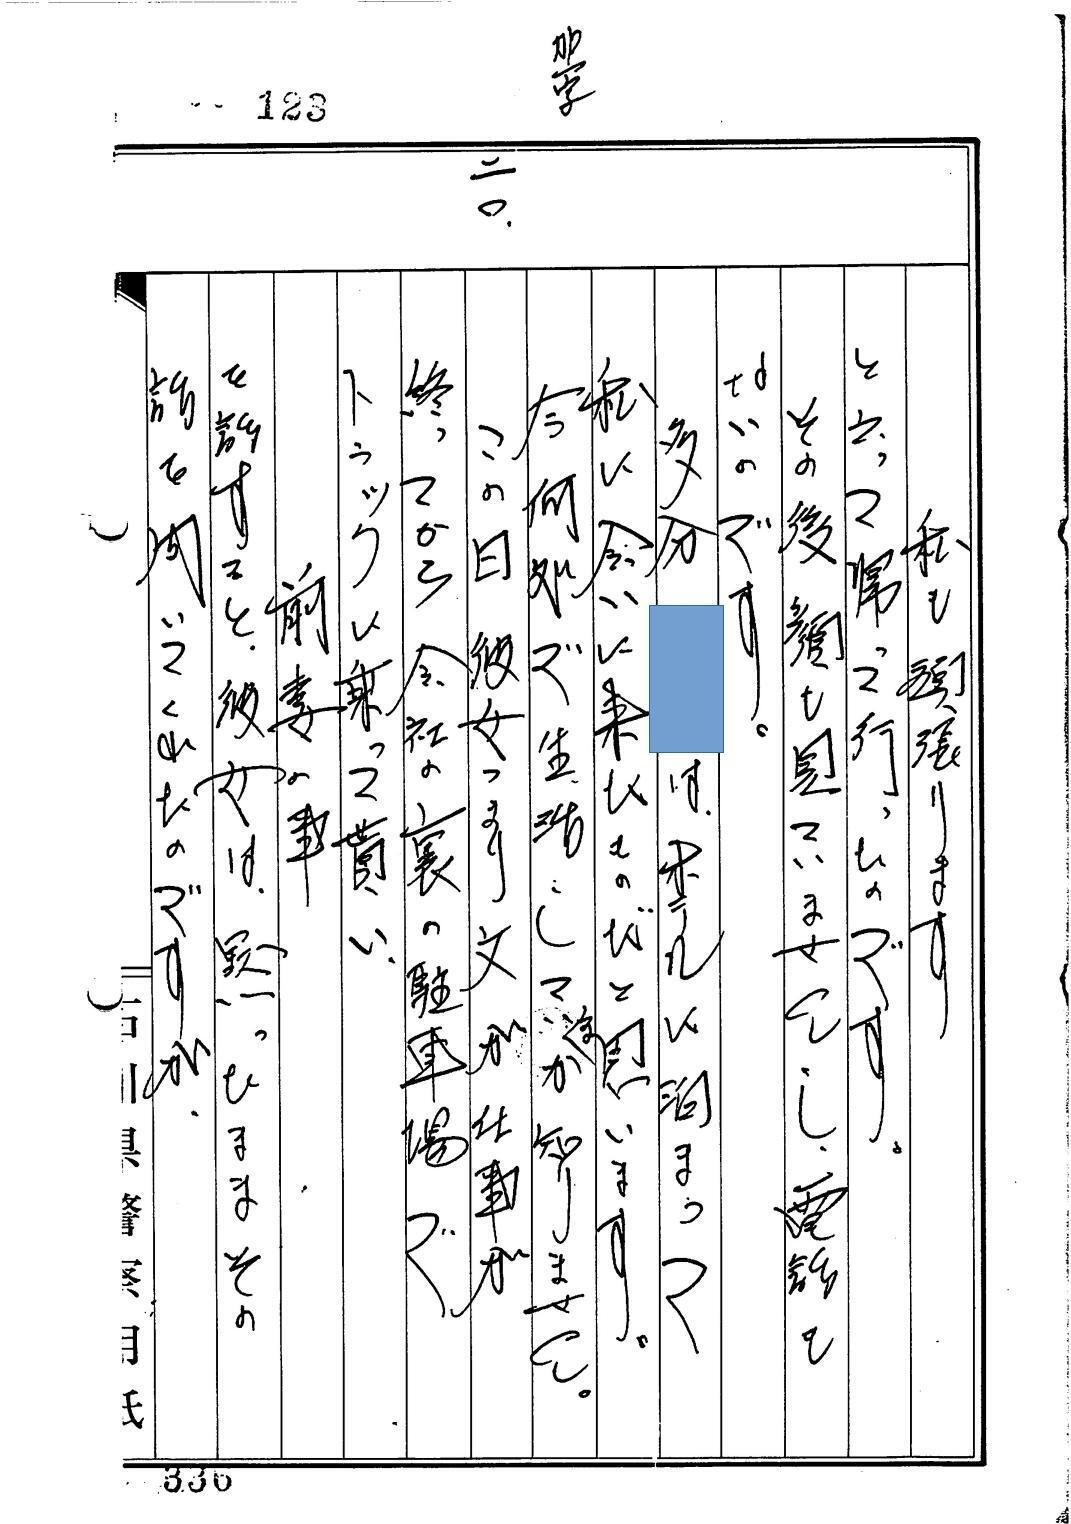 123
加一字
二〇.
私も頑張ります
と云って帰って行ったのです。
その後顔も見ていませんし、電話も
ないのです。
多分
は、ホテルに泊まって
私に会いに来たものだと思います。
今何処で生活しているか知りません。
この日彼女つまり文が仕事が
終ってから会社の裏の駐車場で
トラックに乗って貰い、
前妻の事
を話すと、彼女は、黙ったままその
話を聞いてくれたのですが、
石川県警察用紙
336